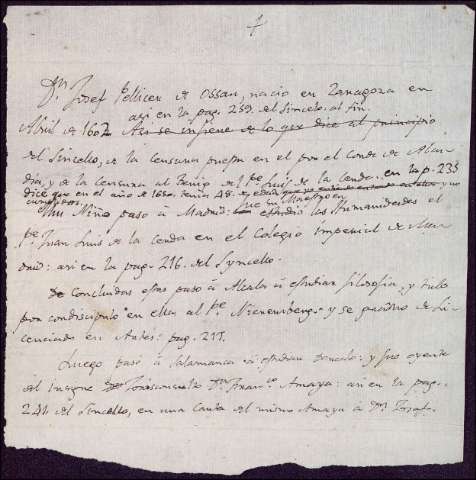 +
Dn. Josef Pellicer de Ossau, nació en Zaragoza en
asi en la pag. 239. del Sincelo. al fin.
Abril de 1602. Asi se infiere de lo que dice al principio
del Sincello, de la censura puesta en el por el Conde de
y de la censura al Fenix de Pe. Luis de la Cerda. en la p. 235
dice que en el año de 1630. tenia 28. de edad y no
cumplidos. fue su Maestro en
Niño pasó a Madrid: estudió las humanidades el
Pe. Juan Luis de la Cerda en el Colegio Imperial de Ma-
drid: asi en la pag. 216. del Syncello.
Concluidas estas pasó a Alcala a estudiar filosofia, y tubo
por condiscipulo en ellas al Pe. Nieremberg: y se graduó de Li-
cenciado en Artes: pag. 217.
Luego pasó a Salamanca a estudiar Derecho: y fue oyente
del insigne Jurisconsulto Dn. Franco. Amaya: asi en la pag.
241 del Sincello, en una Carta del mismo Amaya a Dn. Josef.